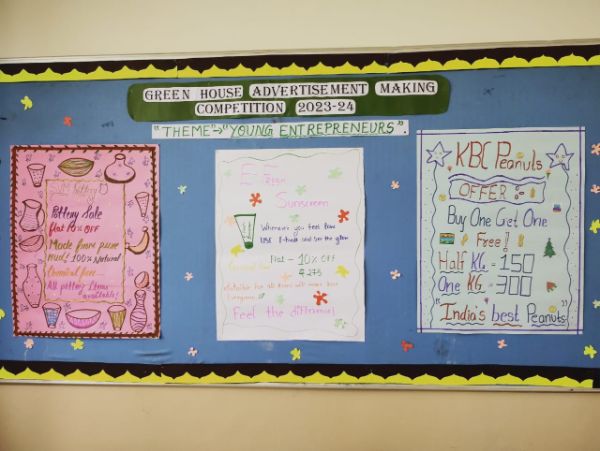 GREEN HOUSE ADVERTISEMENT MAKING
COMPETITION 2023-24
"THEME"→"YOUNG ENTREPRENEURS".
Pottery
Pottery Sale
flat 10% OFF
Made from pure
mud! 100% Natural
Chemical free
All pottery items
available!
Sunscreen
Whenever you feel low
use
the glow
Flat - 10% OFF
₹ 275
Suitable for all
Everyone
Feel the difference
KBC Peanuts
OFFER
Buy One Get One
Free!
Half KG = 150
One KG = 300
"India's best Peanuts"